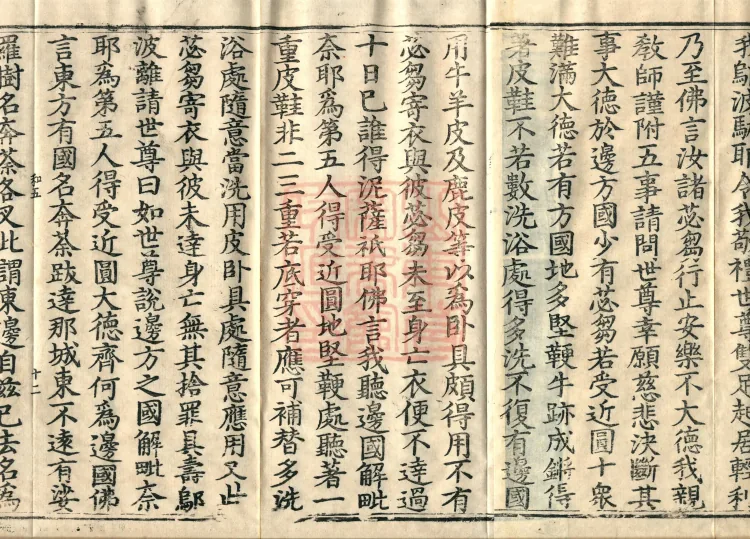 我鄔波馱耶令我敬禮世尊雙足起居輕利
乃至佛言汝諸苾芻行止安樂不大德我親
教師謹附五事請問世尊幸願慈悲決斷其
事大德於邊方國少有苾芻若受近圓十衆
難滿大德若有方國地多堅鞕牛跡成鏘得
著皮鞋不若數洗浴處得多洗不復有邊國
用牛羊皮及鹿皮等以爲卧具頗得用不有
苾芻寄衣與彼苾芻未至身亡衣便不達過
十日已誰得泥薩祇耶佛言我聽邊國解毗
奈耶爲第五人得受近圓地堅鞕處聽著一
重皮鞋非二三重若底穿者應可補替多洗
浴處隨意當洗用皮卧具處隨意應用又此
苾芻寄衣與彼未達身亡無其捨罪具壽鄔
波離請世尊曰如世尊說邊方之國解毗奈
耶爲第五人得受近圓大德齊何爲邊國佛
言東方有國名奔荼跋達那城東不遠有娑
和五
十二
羅樹名奔荼各叉此謂東邊自茲已去名爲